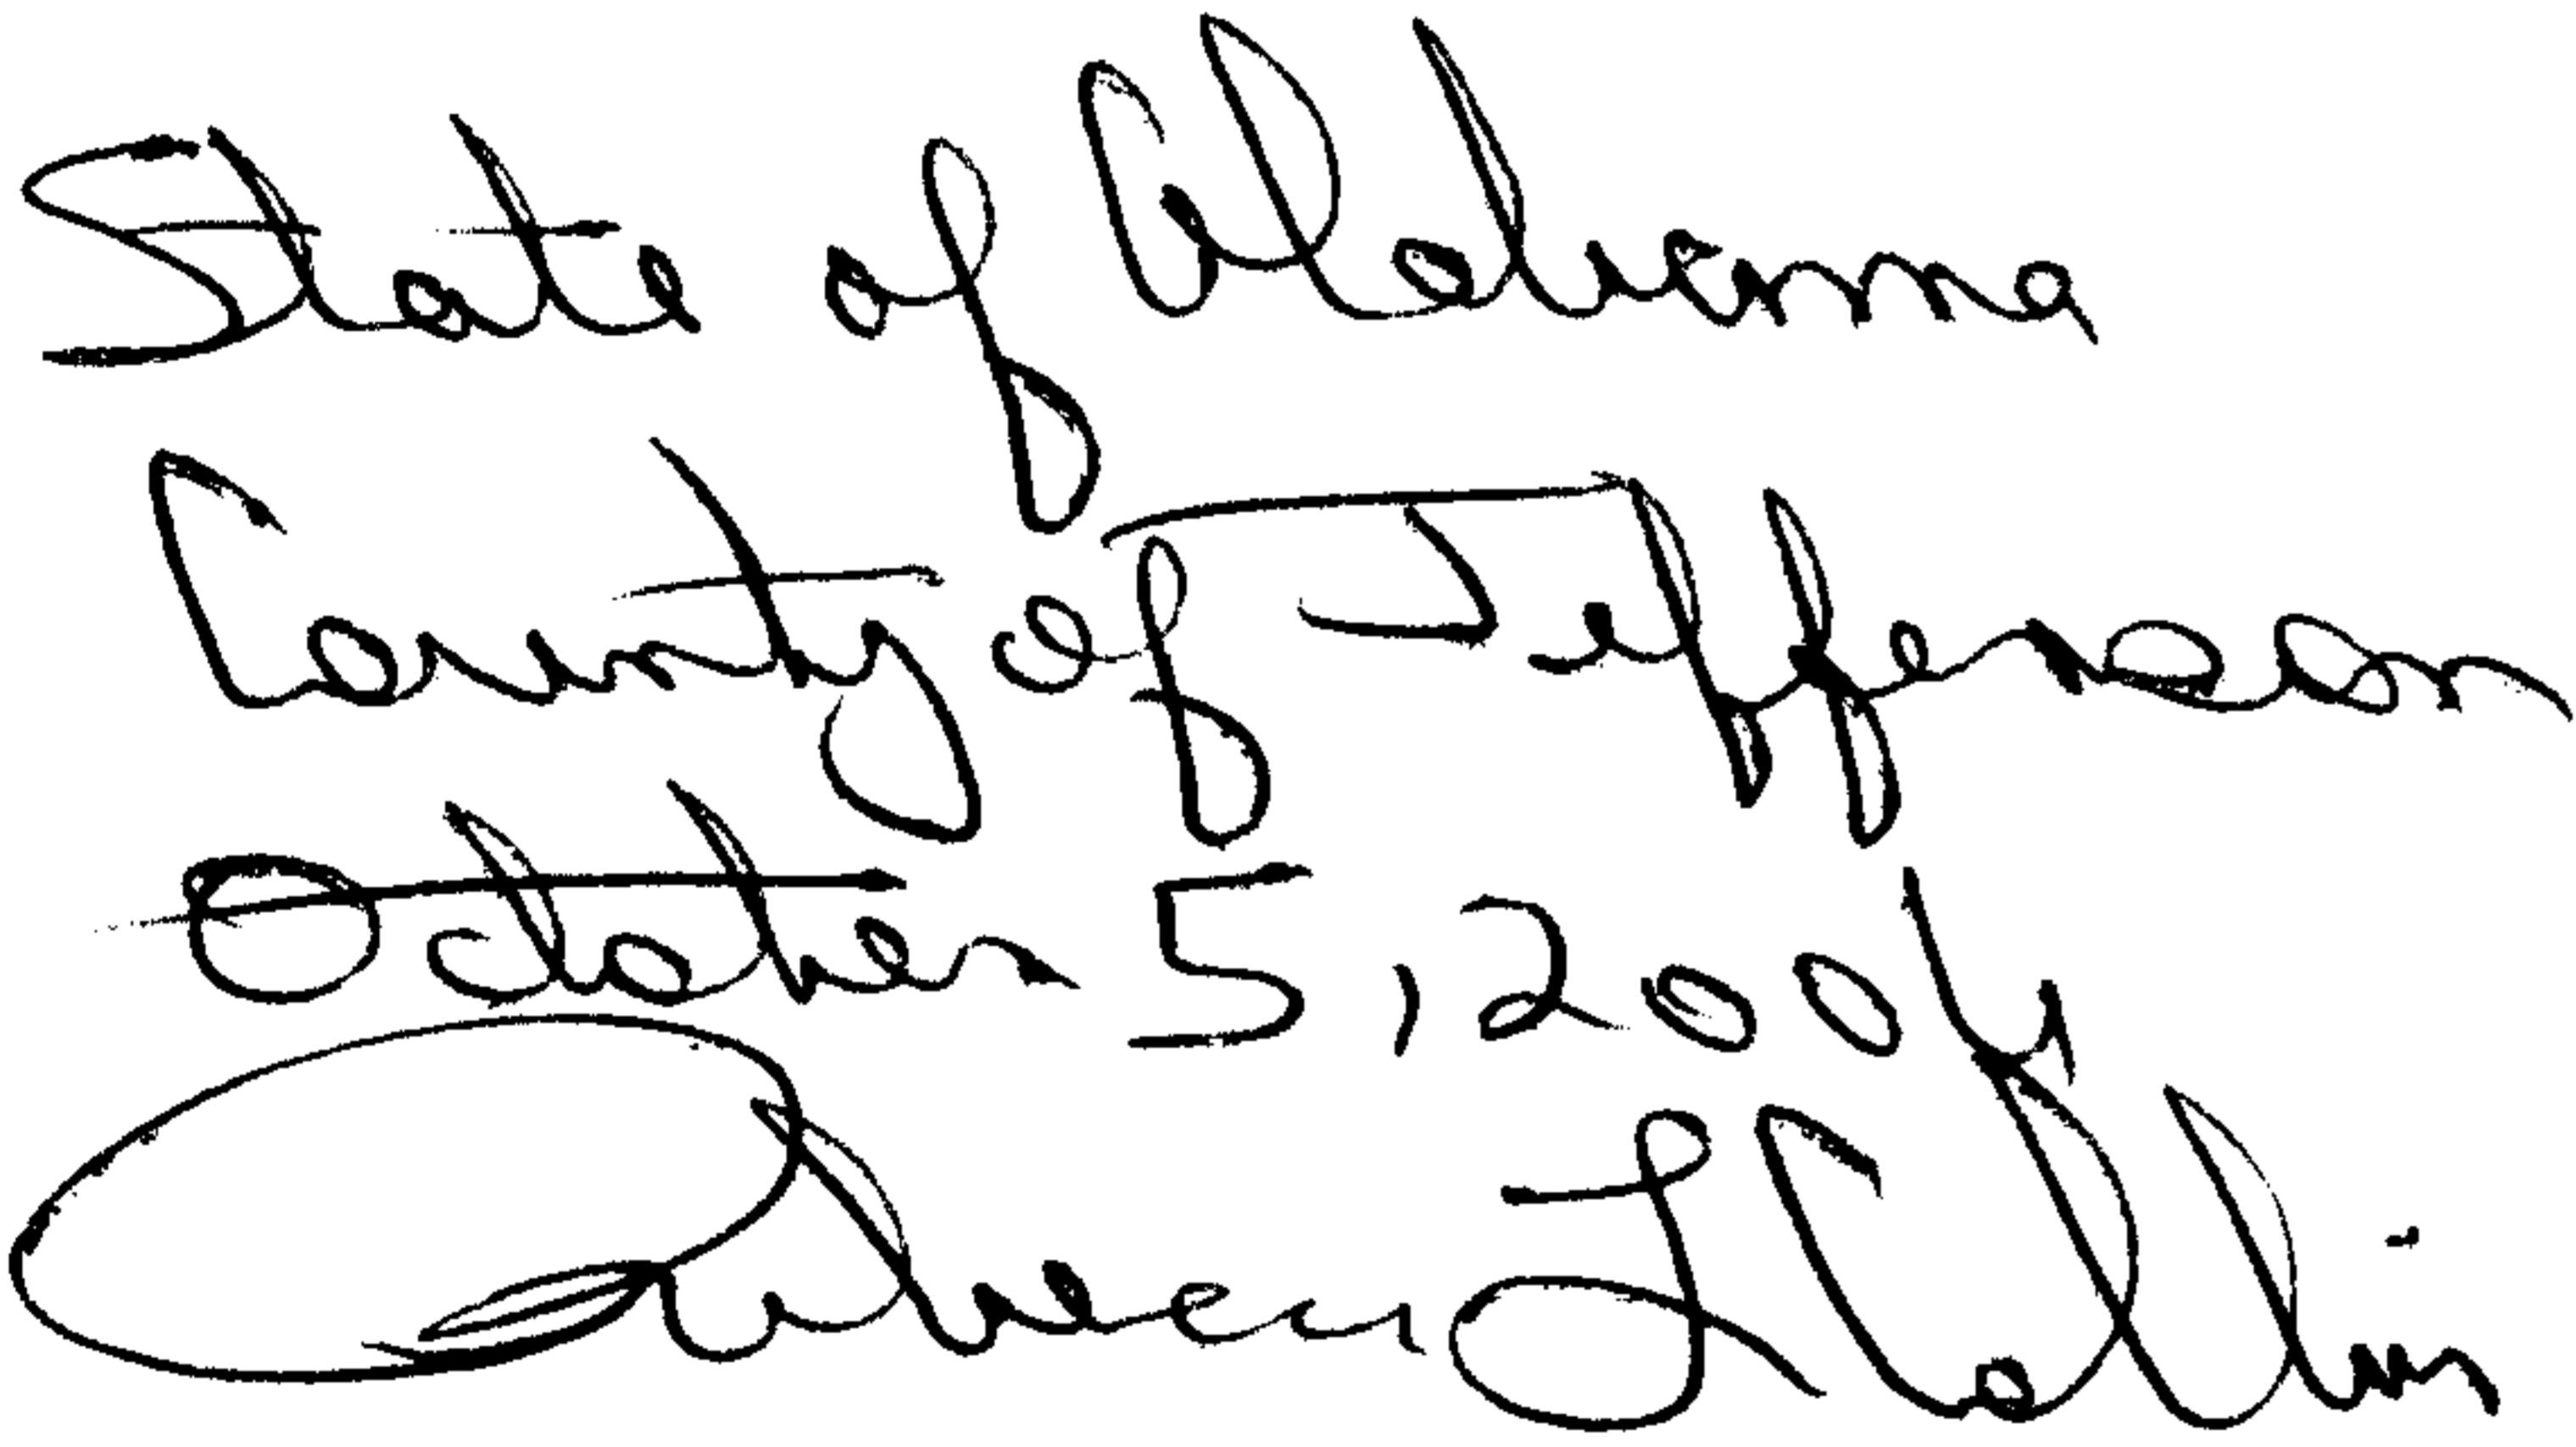 State of Alabama
County of Jefferson
October 5, 2004
L Collin